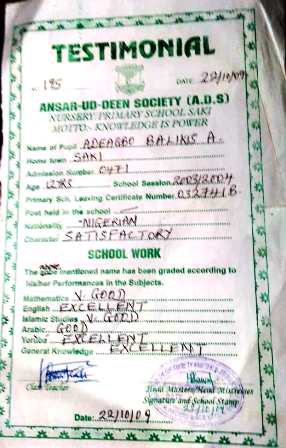 TESTIMONIAL
No. 195 DATE: 22/10/09
ANSAR-UD-DEEN SOCIETY (A.D.S)
NURSERY/PRIMARY SCHOOL SAKI
MOTTO:- KNOWLEDGE IS POWER
Name of Pupil ADEAGBO BALIKIS A.
Home town SAKI
Admission Number 0471
Age 12YRS School Session 2003/2004
Primary Sch. Leaving Certificate Number 032741B
Post held in the school —
Nationality NIGERIAN
Character SATISFACTORY
SCHOOL WORK
The above mentioned name has been graded according to
his/her Performances in the Subjects.
Mathematics V. GOOD
English EXCELLENT
Islamic Studies V. GOOD
Arabic GOOD
Yoruba EXCELLENT
General Knowledge EXCELLENT
Class Teacher Head Masters/Head Mistresses
Signature and School Stamp
Date: 22/10/09